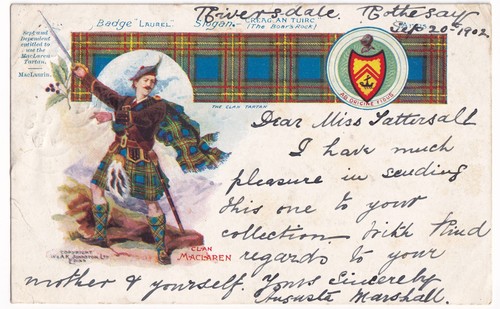 Riversdale. Rothesay
Sep 20th 1902
Badge "LAUREL" Slogan- "CREAG AN TUIRC"
(The Boar's Rock)
Sept and
Dependent
entitled to
use the
MacLaren
Tartan.
MacLaurin.
THE CLAN TARTAN
AB ORIGINE FIDUS
Dear Miss Tattersall
I have much
pleasure in sending
this one to your
collection. With kind
regards to your
mother & yourself. Yours Sincerely
Augusta Marshall.
CLAN
MACLAREN
COPYRIGHT
W. & A.K. JOHNSTON LTD
EDINR